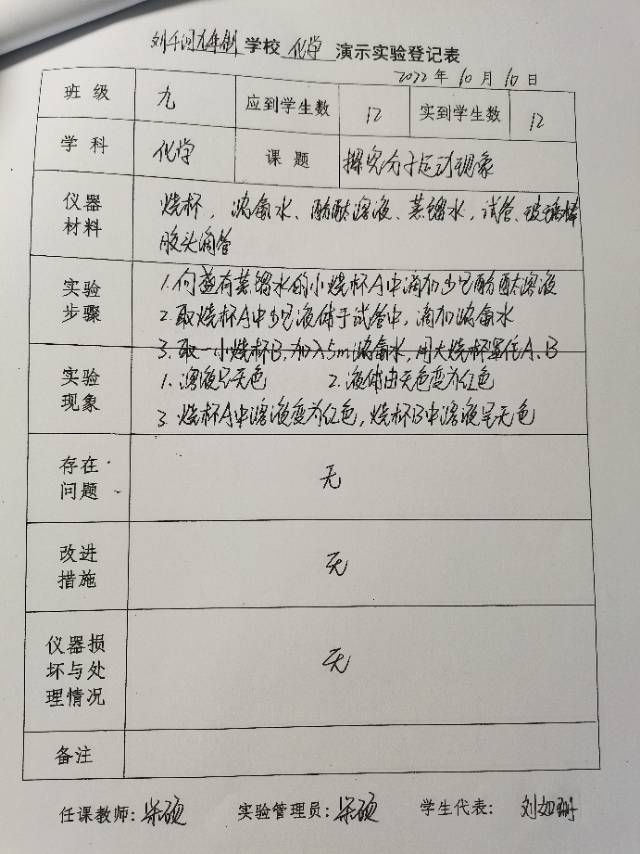 刘千河九年制学校 化学 演示实验登记表
2022年10月10日
班级 九 应到学生数 12 实到学生数 12
学科 化学 课题 探究分子运动现象
仪器材料 烧杯，浓氨水、酚酞溶液、蒸馏水，试管、玻璃棒
胶头滴管
实验步骤 1.向盛有蒸馏水的小烧杯A中滴加少量酚酞溶液
2.取烧杯A中少量液体于试管中，滴加浓氨水
3.取一小烧杯B，加入5m浓氨水，用大烧杯罩住A、B
实验现象 1.溶液呈无色 2.液体由无色变为红色
3.烧杯A中溶液变为红色，烧杯B中溶液呈无色
存在问题 无
改进措施 无
仪器损坏与处理情况 无
备注
任课教师: 实验管理员: 学生代表: 刘如珊